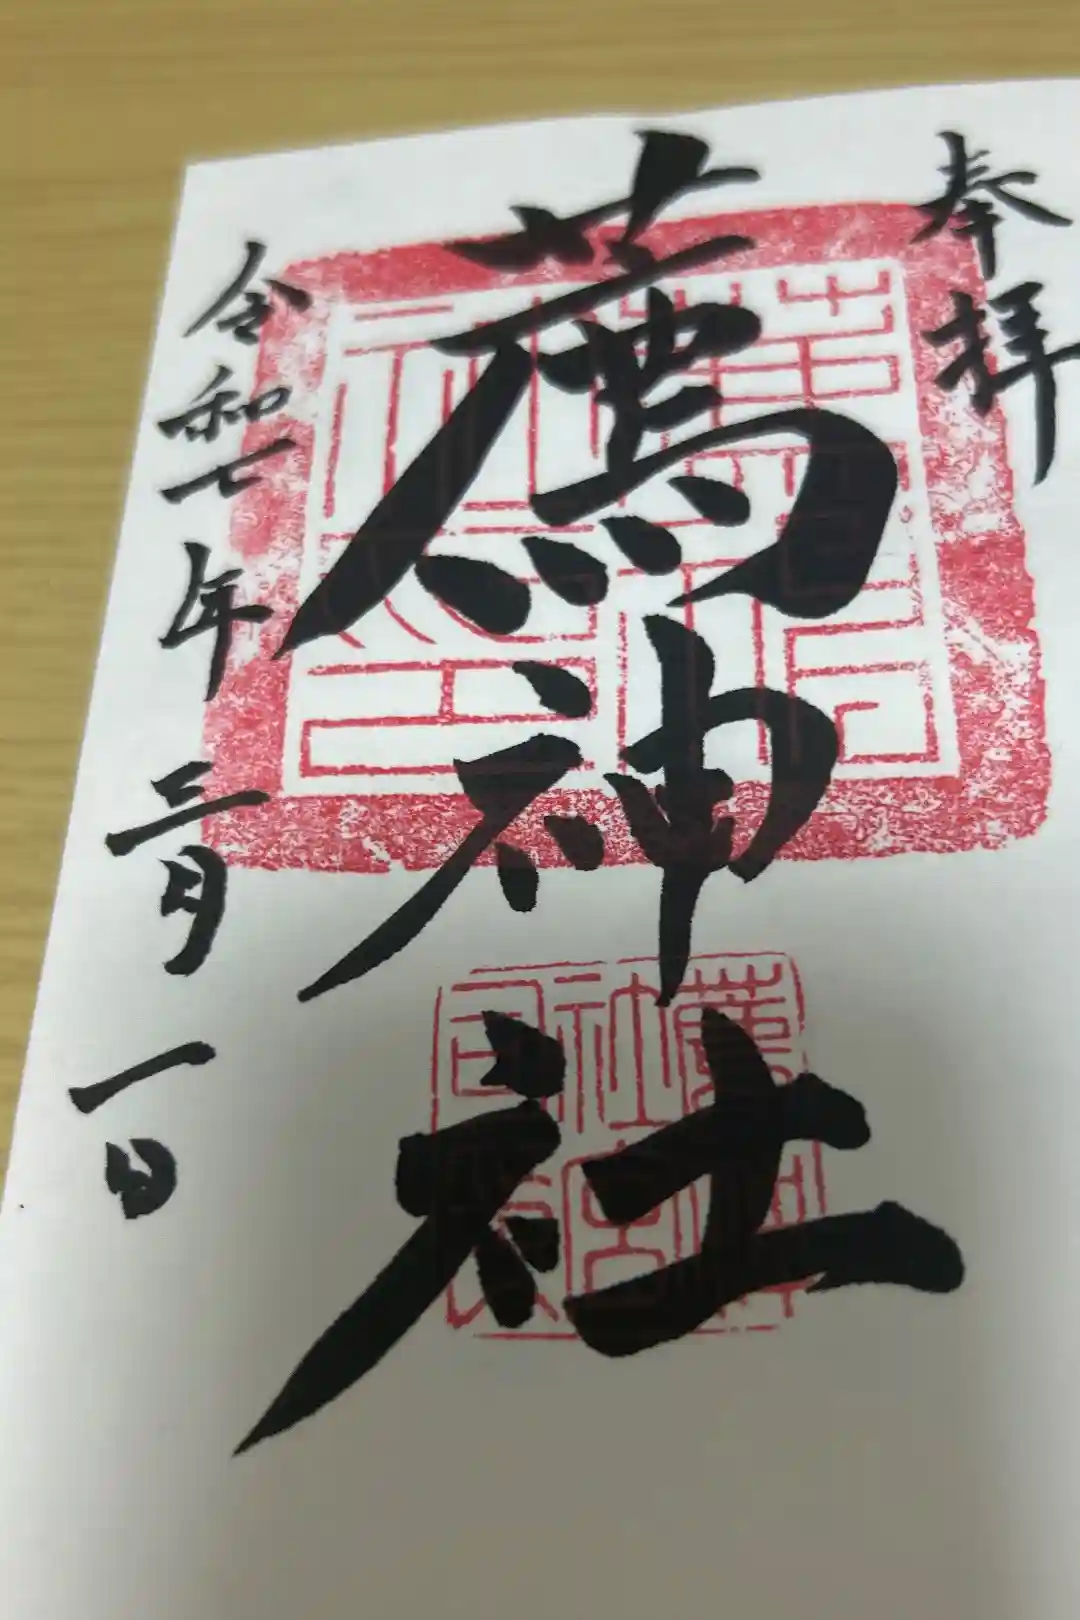 奉拝
薦神社
令和七年三月一日